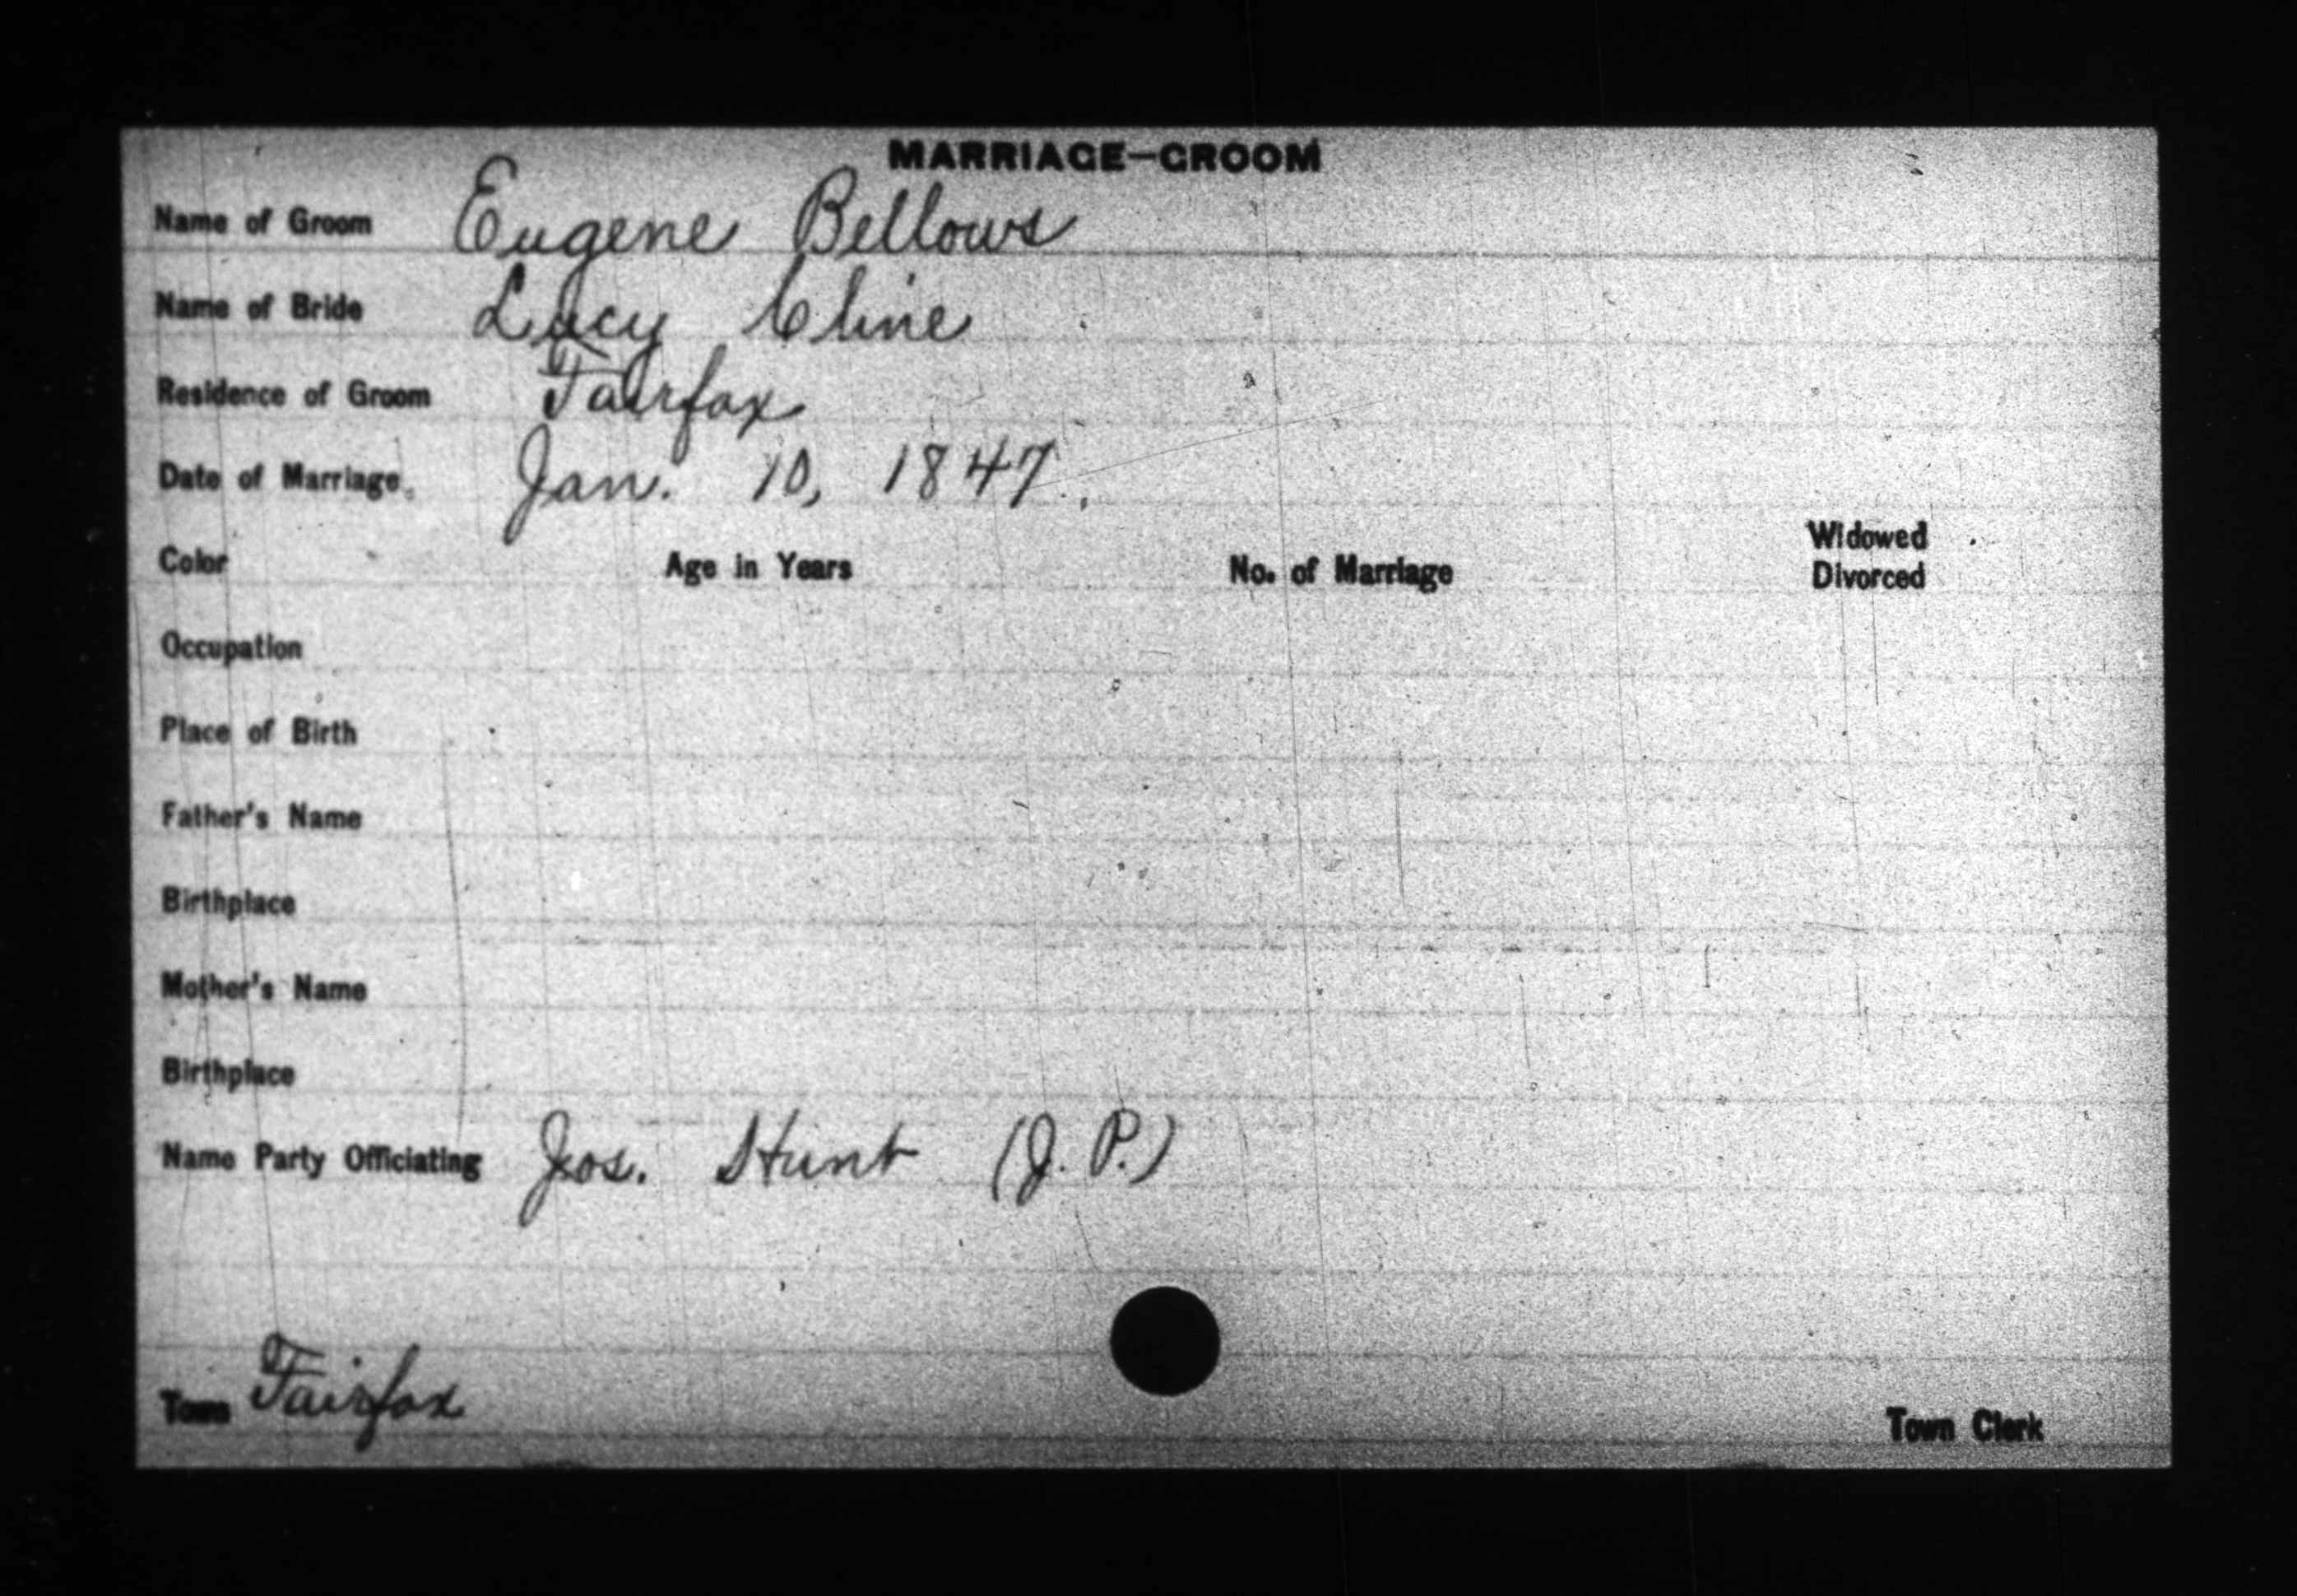 MARRIAGE—GROOM
Name of Groom Eugene Bellows
Name of Bride Lucy Cline
Residence of Groom Fairfax
Date of Marriage Jan. 10, 1847
Color Age in Years No. of Marriage Widowed
Divorced
Occupation
Place of Birth
Father's Name
Birthplace
Mother's Name
Birthplace
Name Party Officiating Jos. Hunt (J. P.)
Town Fairfax
Town Clerk